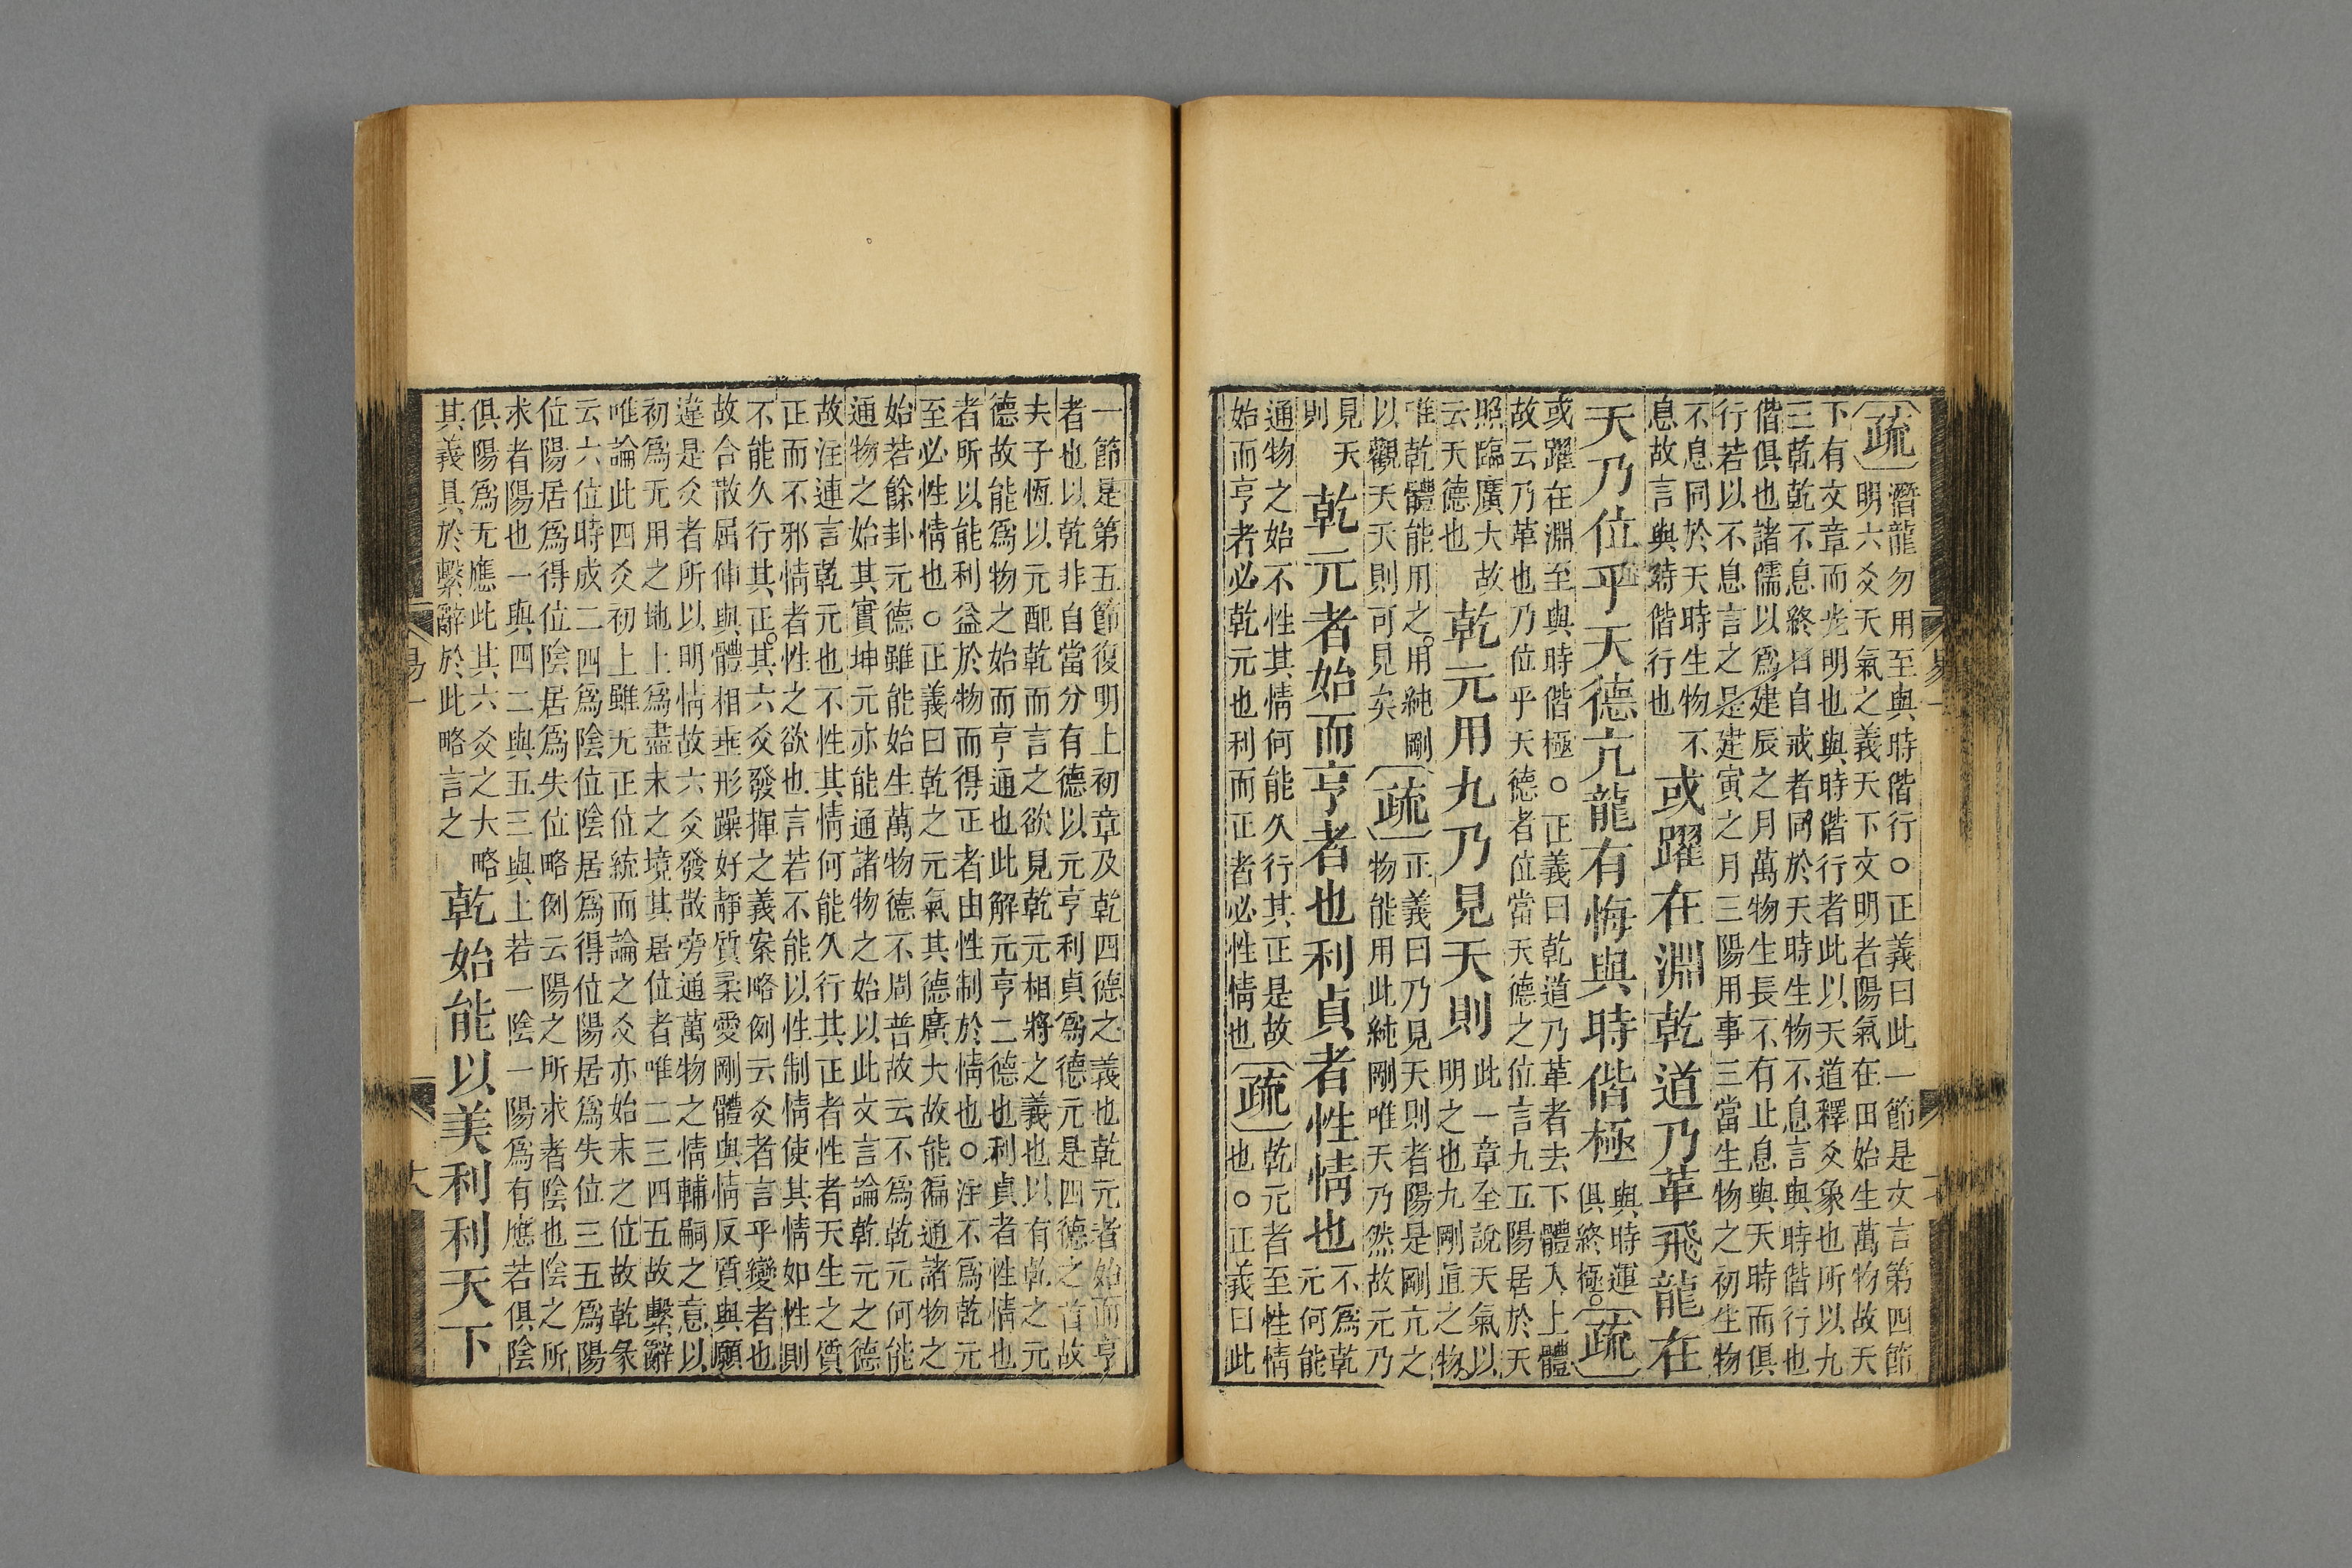 疏 潛龍勿用至與時偕行○正義曰此一節是文言第四節
明六爻天氣之義天下文明者陽氣在田始生萬物故天
下有文章而光明也與時偕行者此以天道釋爻象也所以九
三乾乾不息終日自戒者同於天時生物不息言與時偕行也
偕俱也諸儒以爲建辰之月萬物生長不有止息與天時而俱
行若以不息言之是建寅之月三陽用事三當生物之初生物
不息同於天時生物不
息故言與時偕行也
或躍在淵乾道乃革飛龍在
天乃位乎天德亢龍有悔與時偕極
與時運
俱終極○疏
或躍在淵至與時偕極○正義曰乾道乃革者去下體入上體
故云乃革也乃位乎天德者位當天德之位言九五陽居於天
照臨廣大故
云天德也
乾元用九乃見天則
此一章至說天氣以
明之也九剛直之物
唯乾體能用之○用純剛
以觀天天則可見矣
疏 正義曰乃見天則者陽是剛亢之
物能用此純剛唯天乃然故元乃
見天
則
乾元者始而亨者也利貞者性情也
不爲乾
元何能
通物之始不性其情何能久行其正是故
始而亨者必乾元也利而正者必性情也
疏 乾元者至性情
也○正義曰此
一節是第五節復明上初章及乾四德之義也乾元者始而亨
者也以乾非自當分有德以元亨利貞爲德元是四德之首故
夫子恆以元配乾而言之欲見乾元相將之義也以有乾之元
德故能爲物之始而亨通也此解元亨二德也利貞者性情也
者所以能利益於物而得正者由性制於情也○注不爲乾元
至必性情也○正義曰乾之元氣其德廣大故能徧通諸物之
始若餘卦元德雖能始生萬物德不周普故云不爲乾元何能
通物之始其實坤元亦能通諸物之始以此文言論乾元之德
故注連言乾元也不性其情何能久行其正者性者天生之質
正而不邪情者性之欲也言若不能以性制情使其情如性則
不能久行其正○其六爻發揮之義案略例云爻者言乎變者也
故合散屈伸與體相乖形躁好靜質柔愛剛體與情反質與願
違是爻者所以明情故六爻發散旁通萬物之情輔嗣之意以
初爲无用之地上爲盡末之境其居位者唯二三四五故繫辭
唯論此四爻初上雖无正位統而論之爻亦始末之位故乾彖
云六位時成二四爲陰位陰居爲得位陽居爲失位三五爲陽
位陽居爲得位陰居爲失位略例云陽之所求者陰也陰之所
求者陽也一與四二與五三與上若一陰一陽爲有應若俱陰
俱陽爲无應此其六爻之大略
其義具於繫辭於此略言之
乾始能以美利利天下